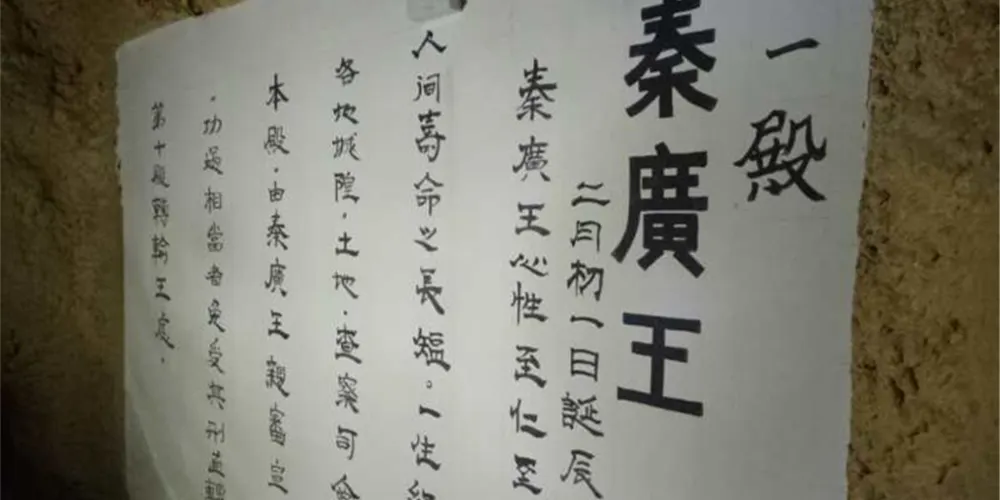 一殿
秦廣王
二月初一日誕辰
秦廣王心性至仁
人间壽命之長短。一生
各地城隍．土地．查察司
本殿．由秦廣王親審
．功過相當者免受其刑直轉
第十殿轉輪王處．